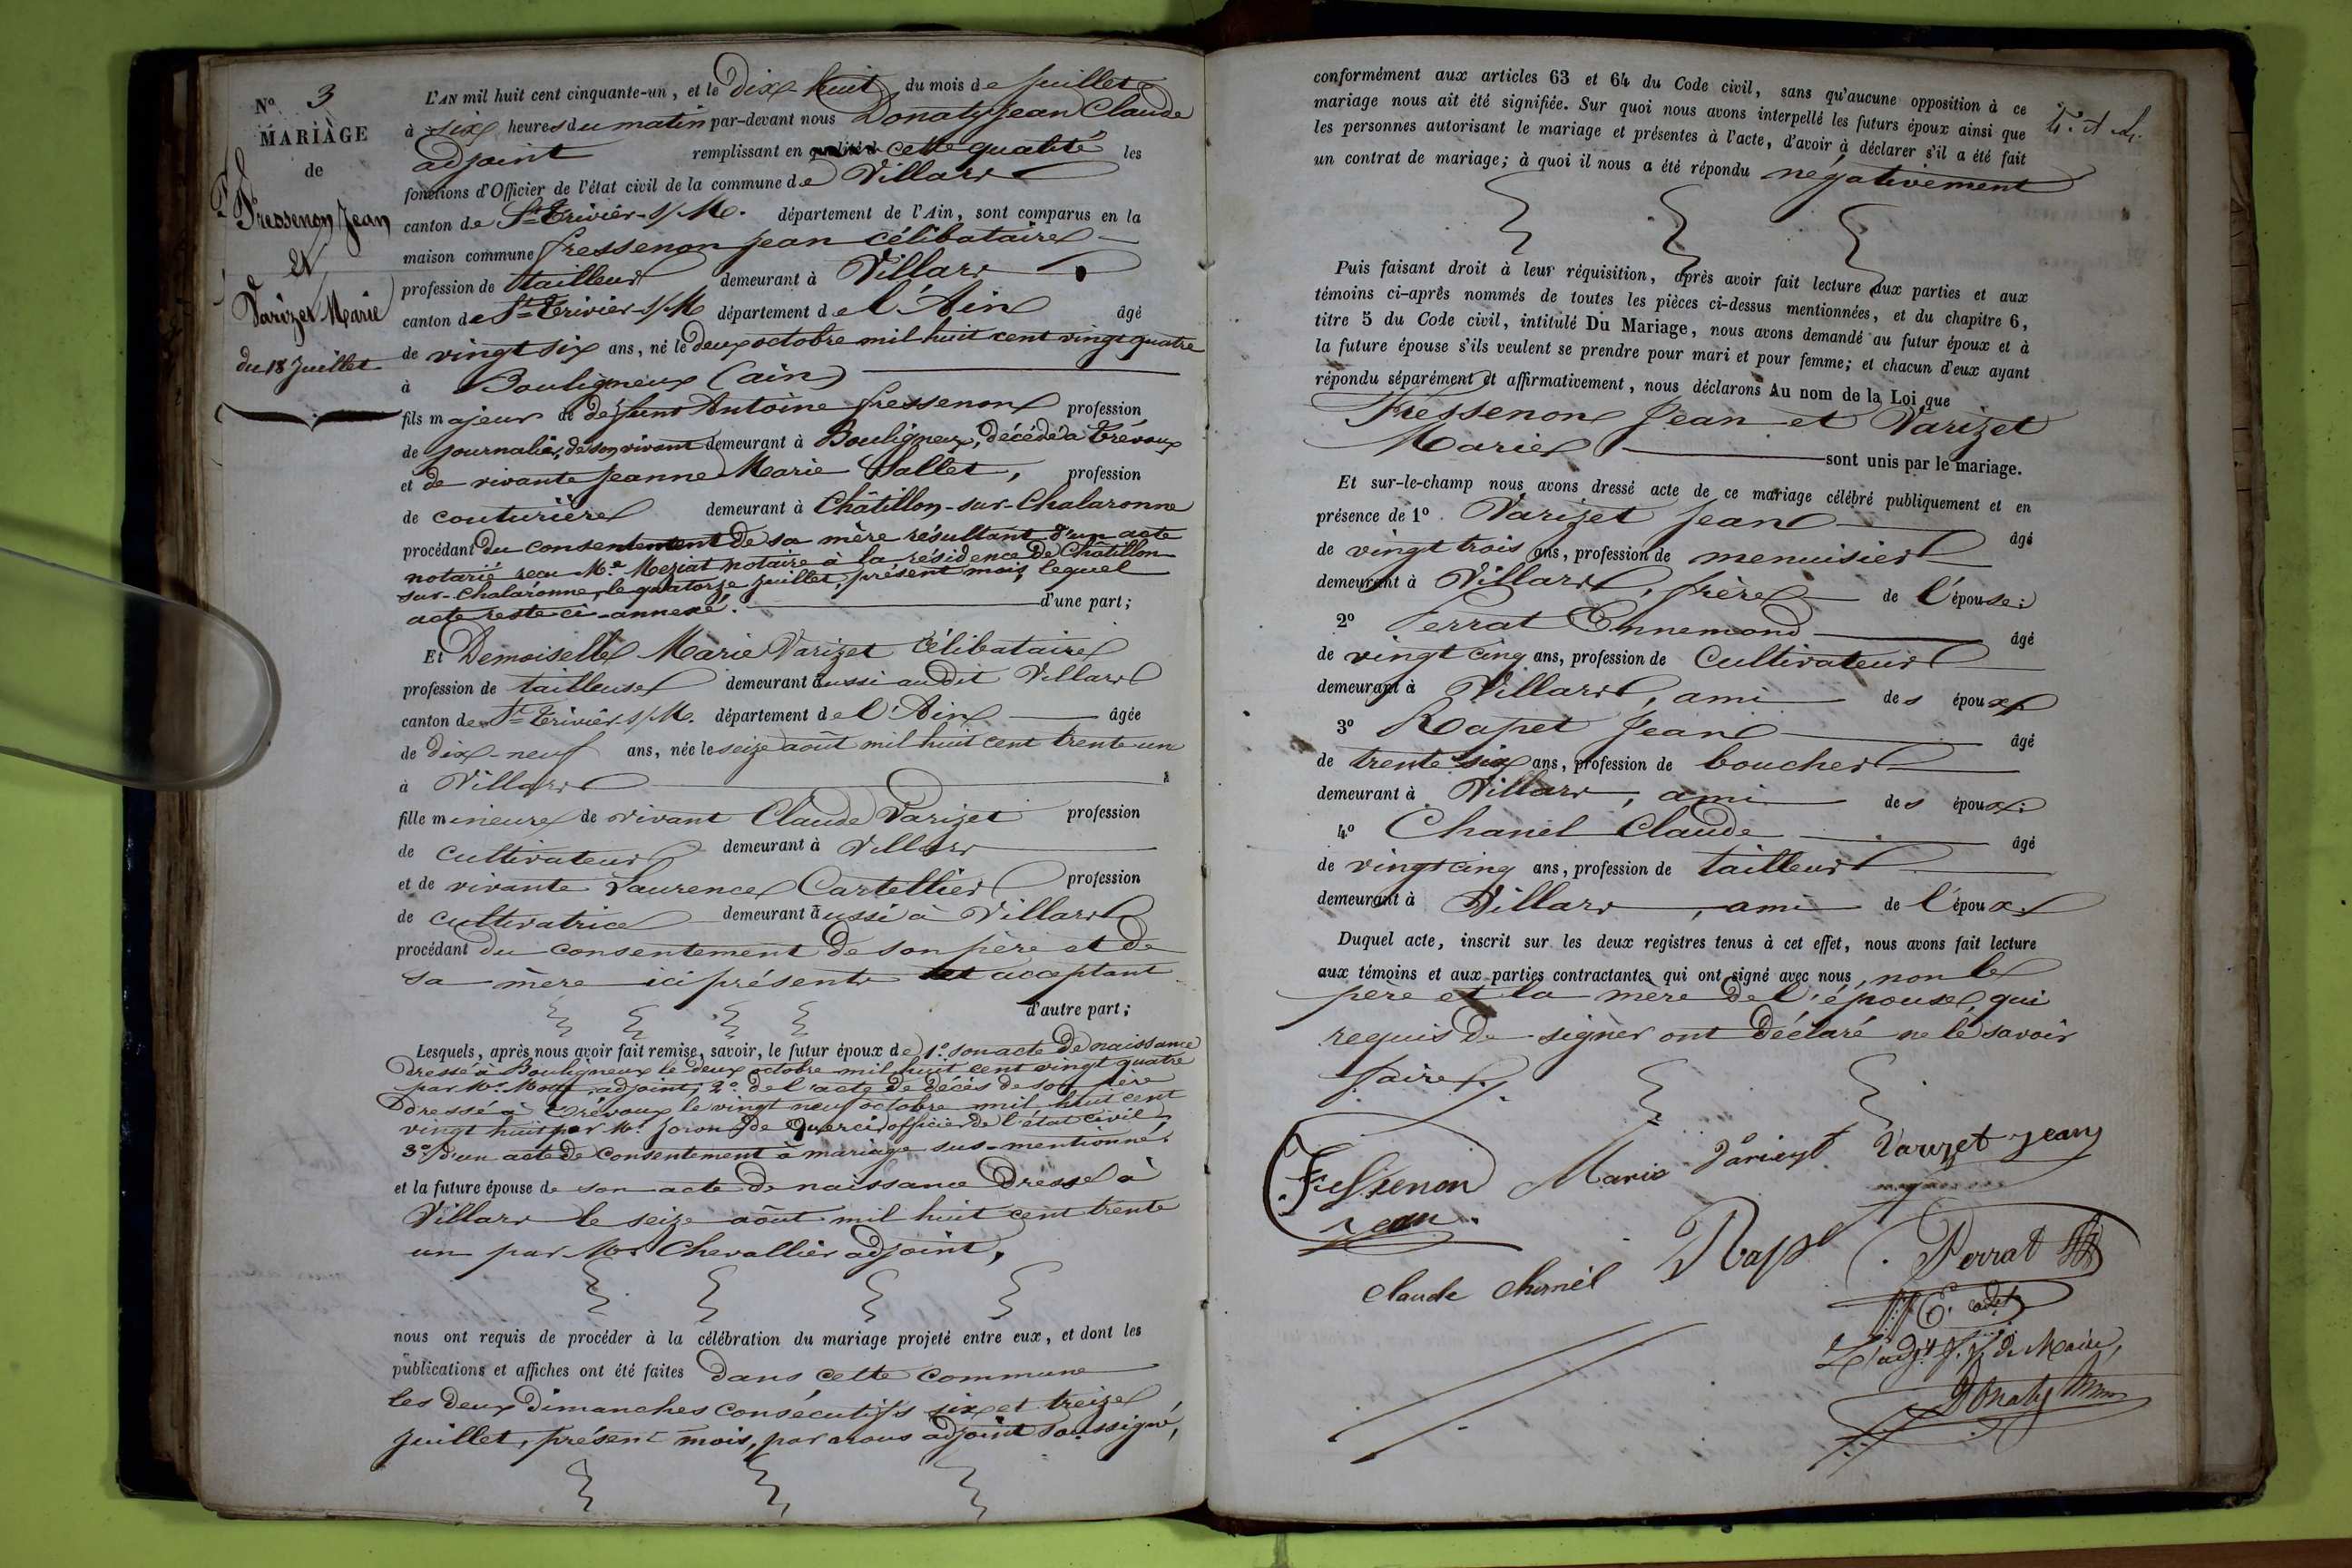 N.º 3
MARIAGE
de
Fressenon Jean
et
Varizet Marie
du 18 Juillet
L'AN mil huit cent cinquante-un, et le Dix huit du mois de juillet
à six heures du matin par-devant nous Donaty Jean Claude
adjoint remplissant en cette qualité les
fonctions d'Officier de l'état civil de la commune de Villars
canton de St Trivier-s/M. département de l'Ain, sont comparus en la
maison commune fressenon jean célibataire
profession de tailleur demeurant à Villars
canton de St Trivier-s/M département de l'Ain âgé
de vingt six ans, né le deux octobre mil huit cent vingt quatre
à Bouligneux (ain)
fils majeur de defunt Antoine fressenon profession
de journalier, de son vivant demeurant à Bouligneux, décédé à Trévoux
et de vivante jeanne Marie Sallet, profession
de couturière demeurant à Châtillon-sur-Chalaronne
procédant du consentement de sa mère résultant d'un acte
notarié reçu Me. Meziat notaire à la résidence de Châtillon
sur-Chalaronne, le quatorze juillet, présent mois, lequel
acte reste ci-annexé. d'une part;
Et Demoiselle Marie Varizet Célibataire
profession de tailleuse demeurant aussi audit Villars
canton de St Trivier-s/M. département de l'Ain âgée
de dix-neuf ans, née le seize août mil huit cent trente un
à Villars
fille mineure de vivant Claude Varizet profession
de cultivateur demeurant à Villars
et de vivante Laurence Cartellier profession
de cultivatrice demeurant aussi à Villars
procédant du consentement de son père et de
sa mère ici présents et acceptant
d'autre part;
Lesquels, après nous avoir fait remise, savoir, le futur époux de 1º. son acte de naissance
dressé à Bouligneux le deux octobre mil huit cent vingt quatre
par Mr. adjoint, 2º. de l'acte de décès de son père
Dressé à Trévoux le vingt neuf octobre mil huit cent
vingt huit par Mr. de Quercid officier de l'état civil,
3º. d'un acte de consentement à mariage sus-mentionné.
et la future épouse de son acte de naissance Dressé à
Villars le seize août mil huit cent trente
un par Mr Chevallier adjoint,
nous ont requis de procéder à la célébration du mariage projeté entre eux, et dont les
publications et affiches ont été faites dans cette commune
les deux Dimanches consécutifs six et treize
juillet, présent mois, par nous adjoint soussigné,
conformément aux articles 63 et 64 du Code civil, sans qu'aucune opposition à ce
mariage nous ait été signifiée. Sur quoi nous avons interpellé les futurs époux ainsi que
les personnes autorisant le mariage et présentes à l'acte, d'avoir à déclarer s'il a été fait
un contrat de mariage; à quoi il nous a été répondu négativement
Puis faisant droit à leur réquisition, après avoir fait lecture aux parties et aux
témoins ci-après nommés de toutes les pièces ci-dessus mentionnées, et du chapitre 6,
titre 5 du Code civil, intitulé Du Mariage, nous avons demandé au futur époux et à
la future épouse s'ils veulent se prendre pour mari et pour femme; et chacun d'eux ayant
répondu séparément et affirmativement, nous déclarons Au nom de la Loi que
Fressenon Jean et Varizet
Marie sont unis par le mariage.
Et sur-le-champ nous avons dressé acte de ce mariage célébré publiquement et en
présence de 1º Varizet Jean âgé
de vingt trois ans, profession de menuisier
demeurant à Villars, frère de l'épouse;
2º Perrat Ennemond âgé
de vingt cinq ans, profession de Cultivateur
demeurant à Villars, ami des époux;
3º Rapet Jean âgé
de trente six ans, profession de boucher
demeurant à Villars, ami des époux;
4º Chanel Claude âgé
de vingt cinq ans, profession de tailleur
demeurant à Villars, ami de l'époux.
Duquel acte, inscrit sur les deux registres tenus à cet effet, nous avons fait lecture
aux témoins et aux parties contractantes qui ont signé avec nous, non le
père et la mère de l'épouse, qui
requis de signer ont déclaré ne le savoir
faire.
Fressenon Marie Varizet Varizet jean
jean
Claude Chanel Rapet Perrat
E. cadet
L'adjt f. f. de Maire,
Donaty